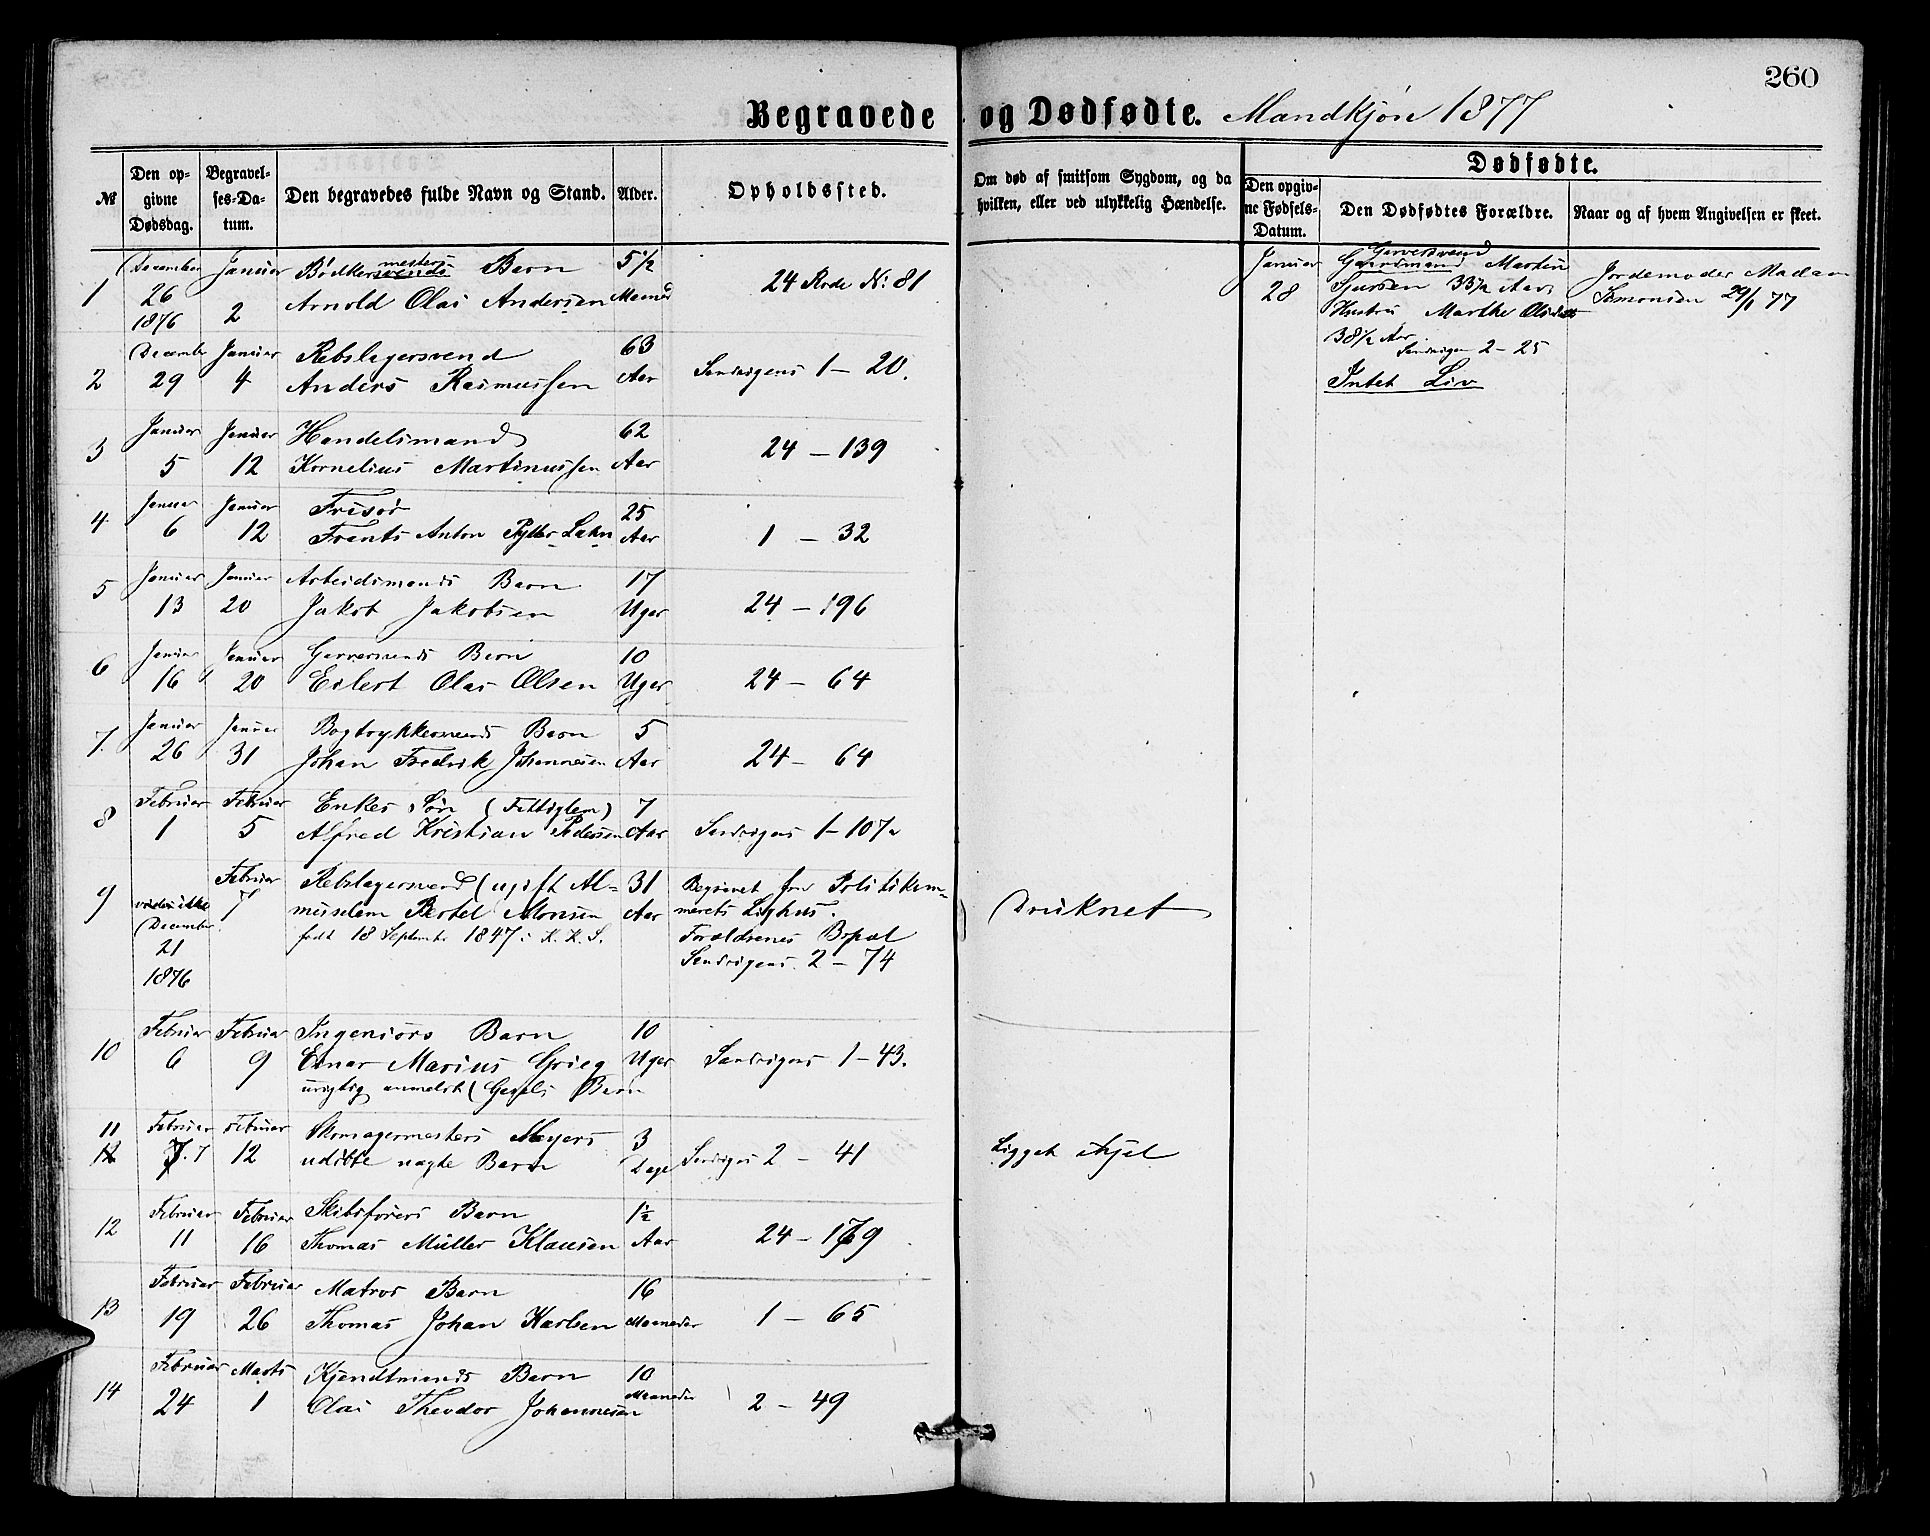 260
Begravede og Dødfødte. Mandkjøn 1877
№
Den opgivne Dødsdag.
Begravelses-Datum.
Den begravedes fulde Navn og Stand.
Alder.
Opholdssted.
Om død af smitsom Sygdom, og da hvilken, eller ved ulykkelig Hændelse.
Dødfødte.
Den opgivne Fødsels-Datum.
Den Dødfødtes Forældre.
Naar og af hvem Angivelsen er skeet.
1 December 26 1876 Januar 2 Bødkersvends mesters Barn 5 1/2
Arnold Olai Andersen Maaned 24 Rode N: 81
2 December 29 Januar 4 Rebslagersvend 63
Anders Rasmussen Aar Sandvigens 1 – 20.
3 Januar 5 Januar 12 Handelsmand 62
Kornelius Martinussen Aar 24 – 139
4 Januar 6 Januar 12 Frisør 25
Frants Anton Lahn Aar 1 – 32
5 Januar 13 Januar 20 Arbeidsmands Barn 17
Jakob Jakobsen Uger 24 – 196
6 Januar 16 Januar 20 Garversvends Barn 10
Eilert Olai Olsen Uger 24 – 64
7. Januar 26 Januar 31 Bogtrykkersvends Barn 5
Johan Fredrik Johannesen Aar 24 – 64
8 Februar 1 Februar 5 Enkes Søn (Fattiglem) 7
Alfred Kristian Pedersen Aar Sandvigens 1 – 107a
9 vides ikke (December 21 1876 Februar 7 Rebslagersvend (ugift Al= 31
museslem Bertel Monsen Aar
født 18 September 1847 i K. K. S.
Begravet fra Politikam-
merets Lighus.
Forældrenes Bopæl
Sandvigens 2 – 74
Druknet
10 Februar 6 Februar 9 Ingeniørs Barn 10
Einar Marius Grieg Uger Sandvigens 1 – 43.
urigtig anmeldt ( Barn
11 Februar 7 Februar 12 Skomagermesters Meyers 3
udøbte uægte Barn Dage Sandvigens 2 – 41
Ligget ihjel
12 Februar 11 Februar 16 Skibsførers Barn 1 1/2
Thomas Müller Klausen Aar 24 – 179
13 Februar 19 Februar 26 Matros Barn 16
Thomas Johan Karlsen Maaneder 1 – 65
14 Februar 24 Marts 1 Kjendtmands Barn 10
Olai Theodor Johannesen Maaneder 2 – 49
Januar 28
Garversvend
Gaardmand Martin
Sjursen 33 1/2 Aar
Hustru Marthe Olsdatter
38 1/2 Aar
Sandvigen 2 – 25
Intet Liv
Jordemoder Madam
Simonsen 29/1 77